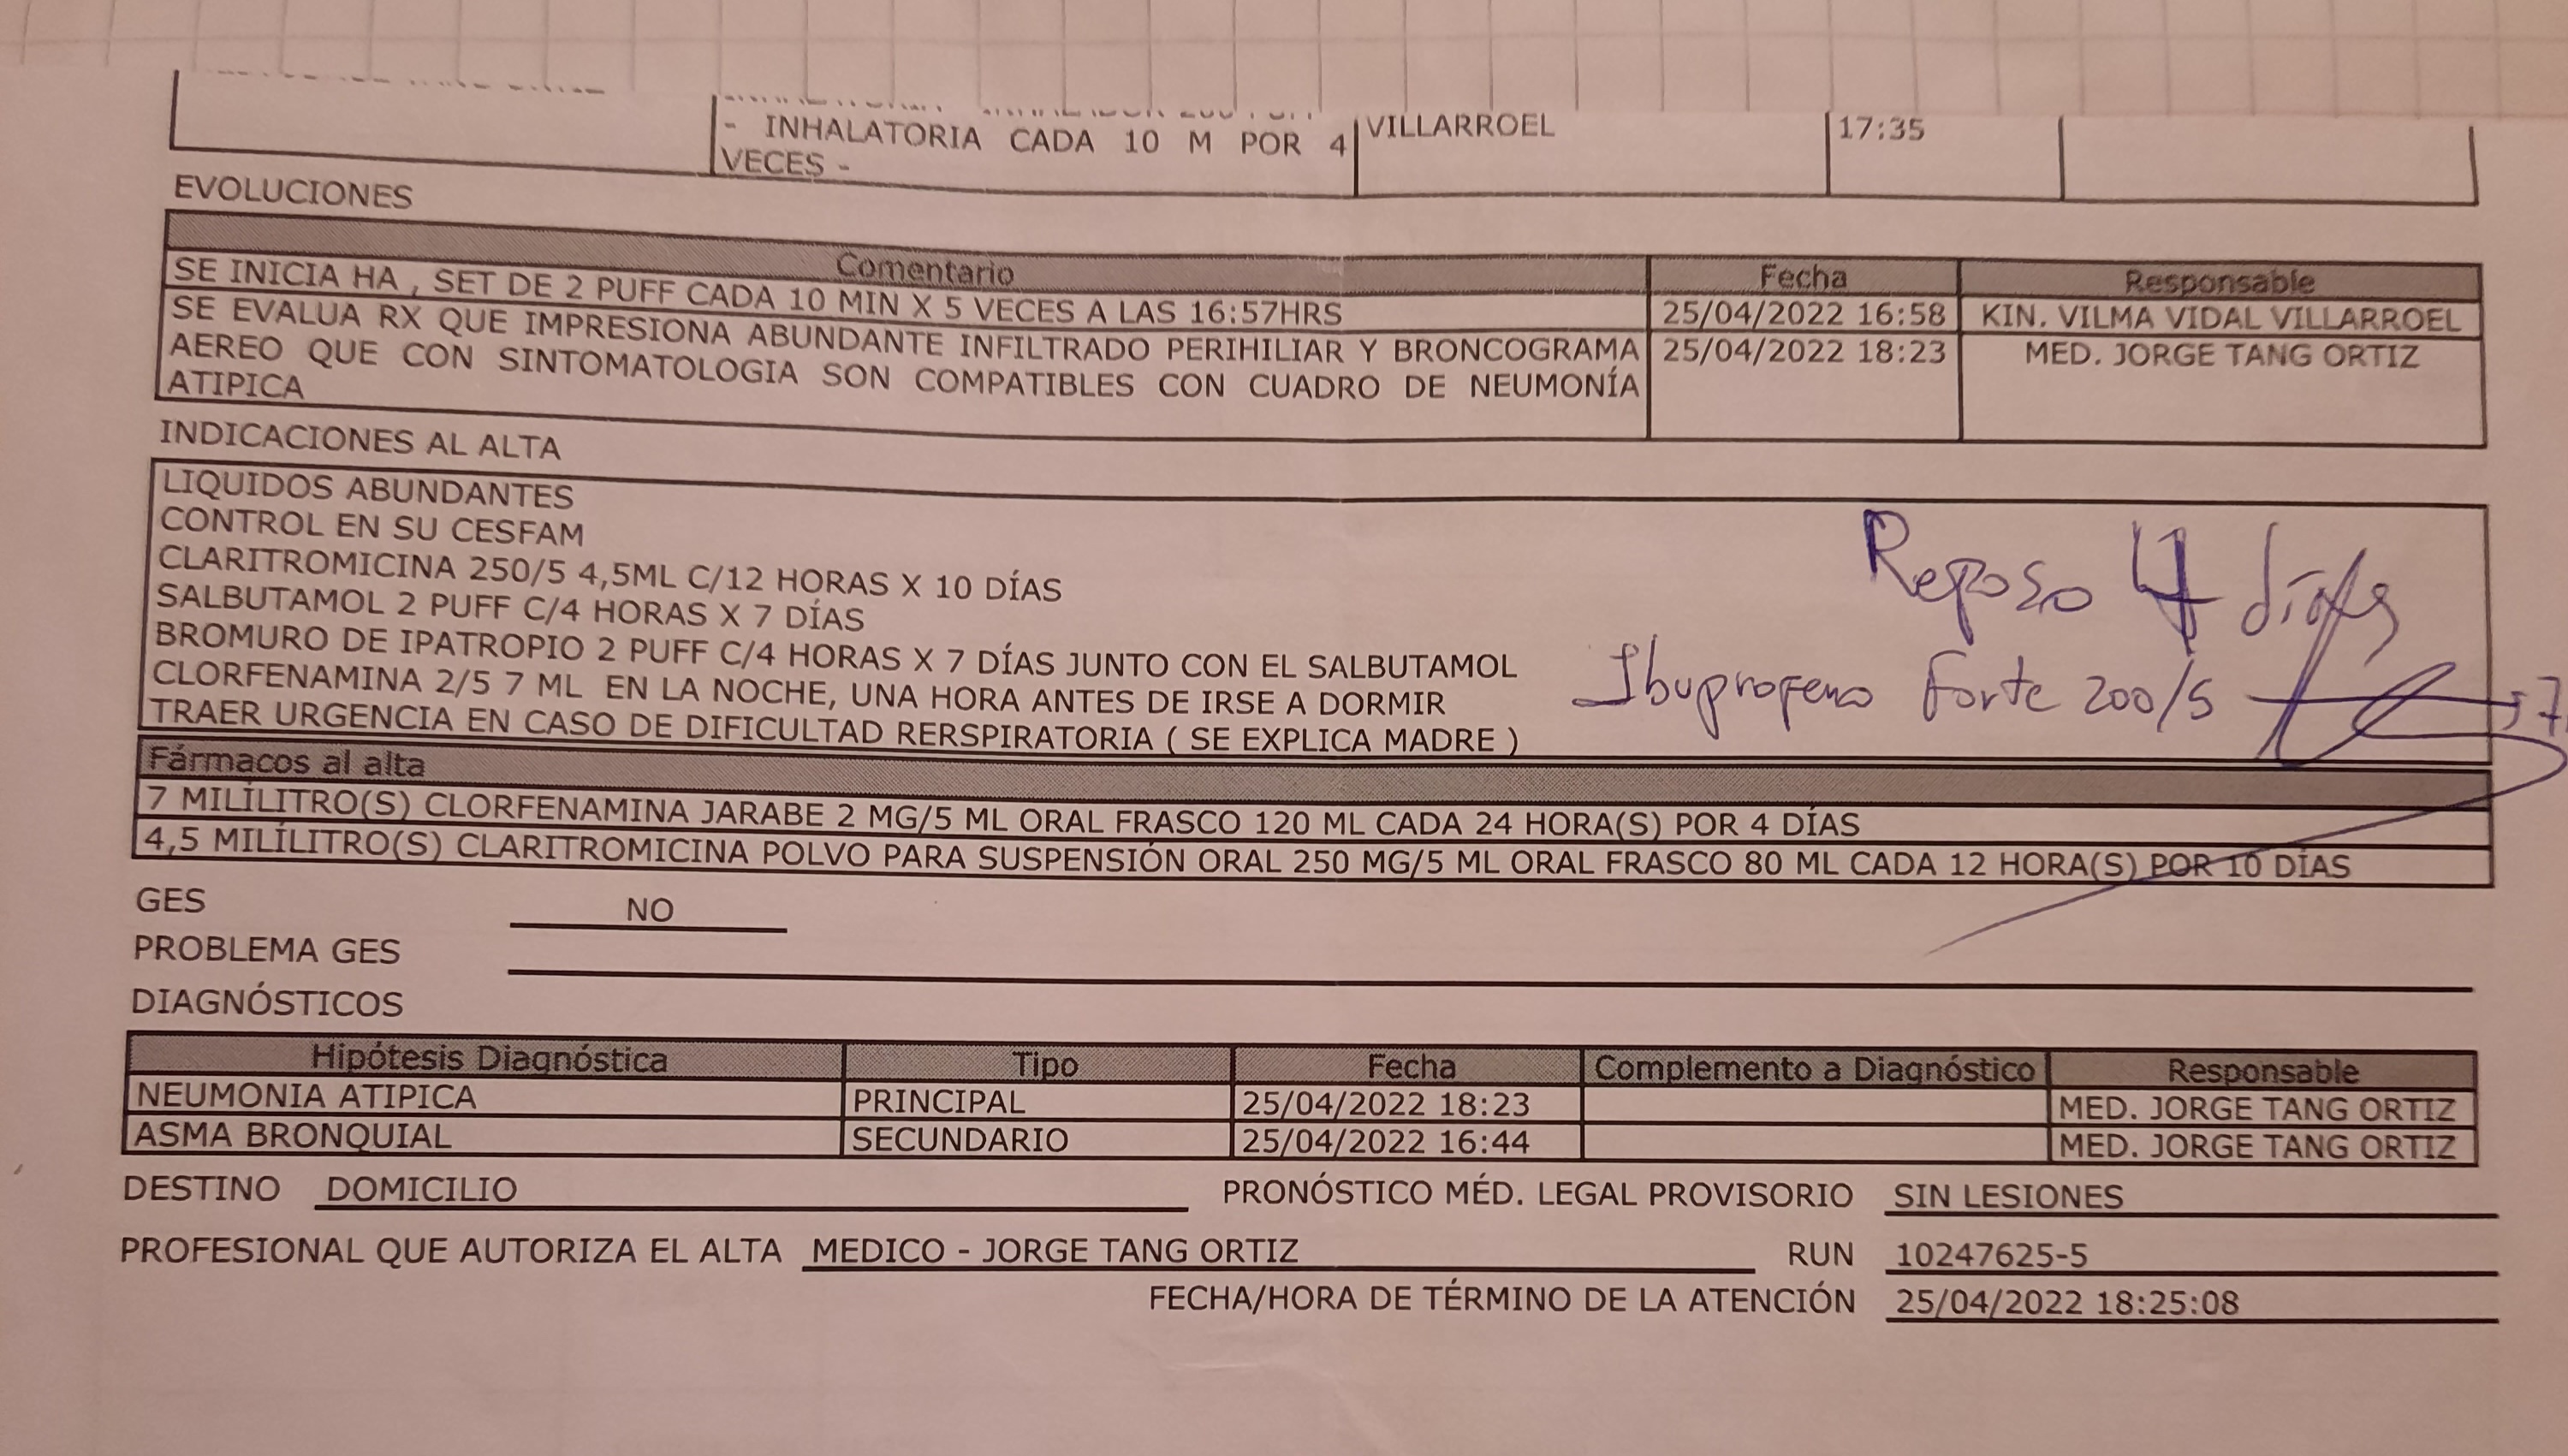 - INHALATORIA CADA 10 M POR 4 VILLARROEL 17:35
VECES -
EVOLUCIONES
Comentario Fecha Responsable
SE INICIA HA , SET DE 2 PUFF CADA 10 MIN X 5 VECES A LAS 16:57HRS 25/04/2022 16:58 KIN. VILMA VIDAL VILLARROEL
SE EVALUA RX QUE IMPRESIONA ABUNDANTE INFILTRADO PERIHILIAR Y BRONCOGRAMA 25/04/2022 18:23 MED. JORGE TANG ORTIZ
AEREO QUE CON SINTOMATOLOGIA SON COMPATIBLES CON CUADRO DE NEUMONÍA
ATIPICA
INDICACIONES AL ALTA
LIQUIDOS ABUNDANTES
CONTROL EN SU CESFAM
CLARITROMICINA 250/5 4,5ML C/12 HORAS X 10 DÍAS
SALBUTAMOL 2 PUFF C/4 HORAS X 7 DÍAS
BROMURO DE IPATROPIO 2 PUFF C/4 HORAS X 7 DÍAS JUNTO CON EL SALBUTAMOL
CLORFENAMINA 2/5 7 ML EN LA NOCHE, UNA HORA ANTES DE IRSE A DORMIR
TRAER URGENCIA EN CASO DE DIFICULTAD RERSPIRATORIA ( SE EXPLICA MADRE )
Reposo 4 días
Ibuprofeno Forte 200/5 → 7
Fármacos al alta
7 MILÍLITRO(S) CLORFENAMINA JARABE 2 MG/5 ML ORAL FRASCO 120 ML CADA 24 HORA(S) POR 4 DÍAS
4,5 MILÍLITRO(S) CLARITROMICINA POLVO PARA SUSPENSIÓN ORAL 250 MG/5 ML ORAL FRASCO 80 ML CADA 12 HORA(S) POR 10 DÍAS
GES NO
PROBLEMA GES
DIAGNÓSTICOS
Hipótesis Diagnóstica Tipo Fecha Complemento a Diagnóstico Responsable
NEUMONIA ATIPICA PRINCIPAL 25/04/2022 18:23 MED. JORGE TANG ORTIZ
ASMA BRONQUIAL SECUNDARIO 25/04/2022 16:44 MED. JORGE TANG ORTIZ
DESTINO DOMICILIO PRONÓSTICO MÉD. LEGAL PROVISORIO SIN LESIONES
PROFESIONAL QUE AUTORIZA EL ALTA MEDICO - JORGE TANG ORTIZ RUN 10247625-5
FECHA/HORA DE TÉRMINO DE LA ATENCIÓN 25/04/2022 18:25:08